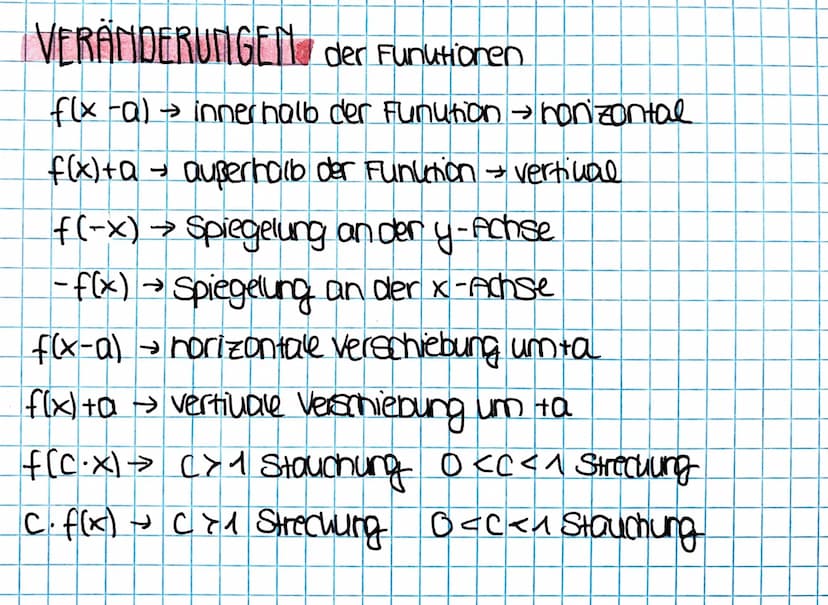 VERÄNDERUNGEN der Funktionen
f(x-a) → innerhalb der Funktion → horizontal
f(x)+a → außerhalb der Funktion → vertikal
f(-x) → Spiegelung an der y-Achse
-f(x) → Spiegelung an der x-Achse
f(x-a) → horizontale Verschiebung um +a
f(x)+a → vertikale Verschiebung um +a
f(c·x) → c>1 Stauchung 0<c<1 Streckung
c·f(x) → c>1 Streckung 0<c<1 Stauchung